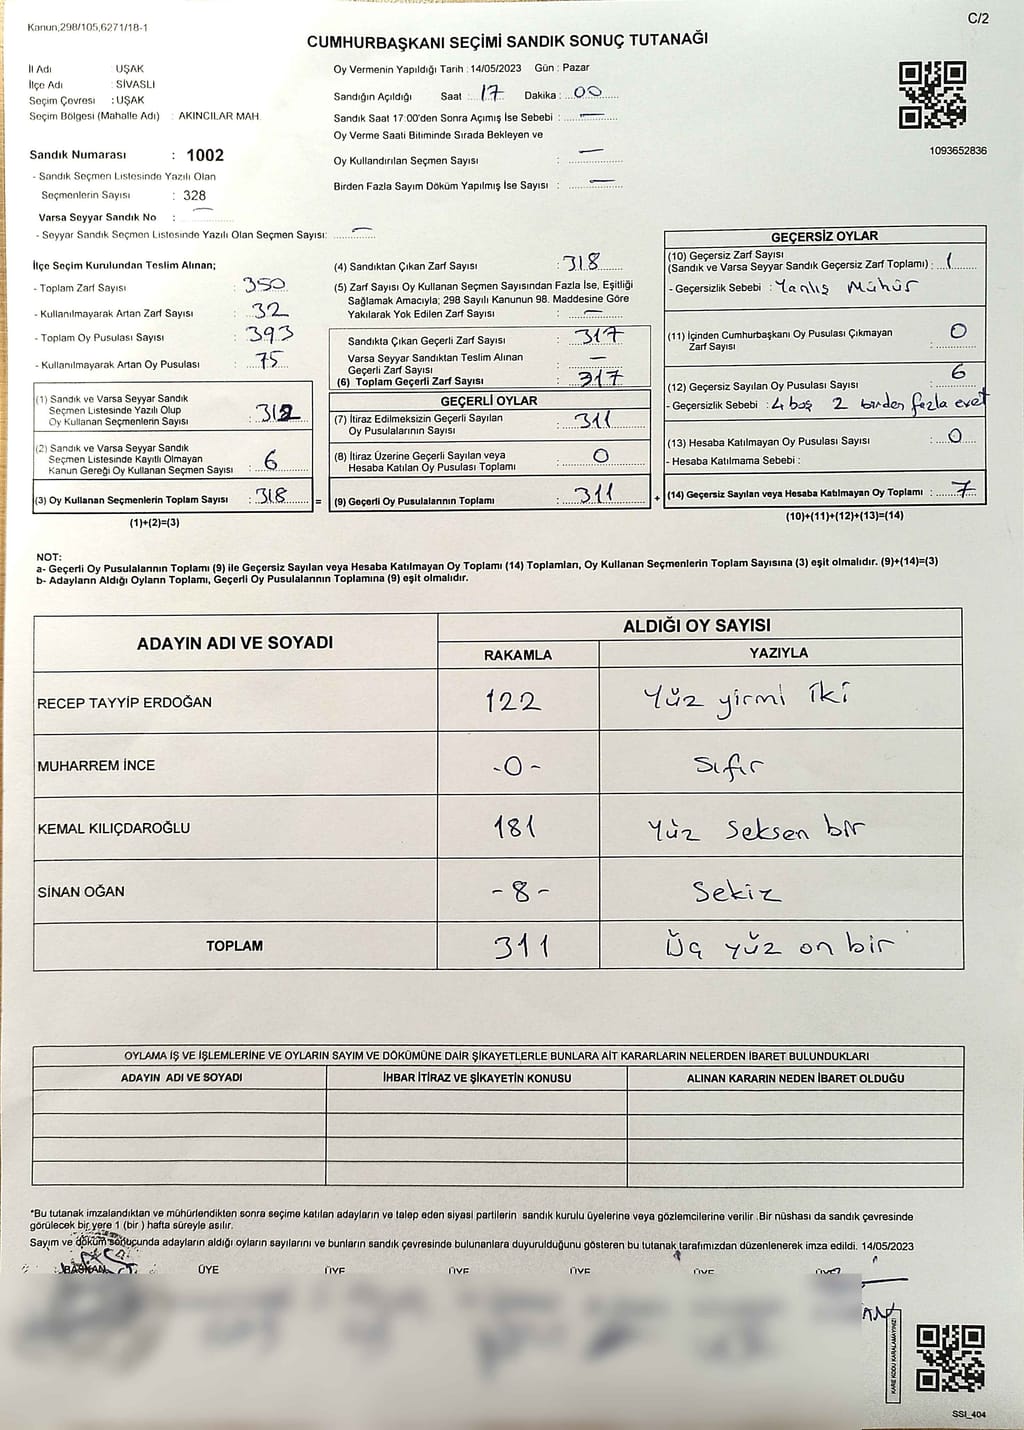 Kanun,298/105,6271/18-1
C/2
CUMHURBAŞKANI SEÇİMİ SANDIK SONUÇ TUTANAĞI
İl Adı : UŞAK
İlçe Adı : SİVASLI
Seçim Çevresi : UŞAK
Seçim Bölgesi (Mahalle Adı) : AKINCILAR MAH.
Sandık Numarası : 1002
- Sandık Seçmen Listesinde Yazılı Olan
Seçmenlerin Sayısı : 328
Varsa Seyyar Sandık No : —
- Seyyar Sandık Seçmen Listesinde Yazılı Olan Seçmen Sayısı: —
Oy Vermenin Yapıldığı Tarih : 14/05/2023 Gün : Pazar
Sandığın Açıldığı Saat : 17 Dakika : 00
Sandık Saat 17:00'den Sonra Açımış İse Sebebi : —
Oy Verme Saati Bitiminde Sırada Bekleyen ve
Oy Kullandırılan Seçmen Sayısı : —
Birden Fazla Sayım Döküm Yapılmış İse Sayısı : —
1093652836
İlçe Seçim Kurulundan Teslim Alınan;
- Toplam Zarf Sayısı : 350
- Kullanılmayarak Artan Zarf Sayısı : 32
- Toplam Oy Pusulası Sayısı : 393
- Kullanılmayarak Artan Oy Pusulası : 75
(1) Sandık ve Varsa Seyyar Sandık
Seçmen Listesinde Yazılı Olup
Oy Kullanan Seçmenlerin Sayısı : 312
(2) Sandık ve Varsa Seyyar Sandık
Seçmen Listesinde Kayıtlı Olmayan
Kanun Gereği Oy Kullanan Seçmen Sayısı : 6
(3) Oy Kullanan Seçmenlerin Toplam Sayısı : 318 =
(1)+(2)=(3)
(4) Sandıktan Çıkan Zarf Sayısı : 318
(5) Zarf Sayısı Oy Kullanan Seçmen Sayısından Fazla İse, Eşitliği
Sağlamak Amacıyla; 298 Sayılı Kanunun 98. Maddesine Göre
Yakılarak Yok Edilen Zarf Sayısı : —
Sandıkta Çıkan Geçerli Zarf Sayısı : 317
Varsa Seyyar Sandıktan Teslim Alınan
Geçerli Zarf Sayısı : —
(6) Toplam Geçerli Zarf Sayısı : 317
GEÇERLİ OYLAR
(7) İtiraz Edilmeksizin Geçerli Sayılan
Oy Pusulalarının Sayısı : 311
(8) İtiraz Üzerine Geçerli Sayılan veya
Hesaba Katılan Oy Pusulası Toplamı : 0
(9) Geçerli Oy Pusulalarının Toplamı : 311 +
GEÇERSİZ OYLAR
(10) Geçersiz Zarf Sayısı
(Sandık ve Varsa Seyyar Sandık Geçersiz Zarf Toplamı) : 1
- Geçersizlik Sebebi : Yanlış Mühür
(11) İçinden Cumhurbaşkanı Oy Pusulası Çıkmayan
Zarf Sayısı : 0
(12) Geçersiz Sayılan Oy Pusulası Sayısı : 6
- Geçersizlik Sebebi : 4 boş 2 birden fazla evet
(13) Hesaba Katılmayan Oy Pusulası Sayısı : 0
- Hesaba Katılmama Sebebi :
(14) Geçersiz Sayılan veya Hesaba Katılmayan Oy Toplamı : 7
(10)+(11)+(12)+(13)=(14)
NOT:
a- Geçerli Oy Pusulalarının Toplamı (9) ile Geçersiz Sayılan veya Hesaba Katılmayan Oy Toplamı (14) Toplamları, Oy Kullanan Seçmenlerin Toplam Sayısına (3) eşit olmalıdır. (9)+(14)=(3)
b- Adayların Aldığı Oyların Toplamı, Geçerli Oy Pusulalarının Toplamına (9) eşit olmalıdır.
ADAYIN ADI VE SOYADI ALDIĞI OY SAYISI
RAKAMLA YAZIYLA
RECEP TAYYİP ERDOĞAN 122 Yüz yirmi iki
MUHARREM İNCE -0- Sıfır
KEMAL KILIÇDAROĞLU 181 Yüz Seksen bir
SİNAN OĞAN -8- Sekiz
TOPLAM 311 Üç yüz on bir
OYLAMA İŞ VE İŞLEMLERİNE VE OYLARIN SAYIM VE DÖKÜMÜNE DAİR ŞİKAYETLERLE BUNLARA AİT KARARLARIN NELERDEN İBARET BULUNDUKLARI
ADAYIN ADI VE SOYADI İHBAR İTİRAZ VE ŞİKAYETİN KONUSU ALINAN KARARIN NEDEN İBARET OLDUĞU
*Bu tutanak imzalandıktan ve mühürlendikten sonra seçime katılan adayların ve talep eden siyasi partilerin sandık kurulu üyelerine veya gözlemcilerine verilir .Bir nüshası da sandık çevresinde
görülecek bir yere 1 (bir ) hafta süreyle asılır.
Sayım ve döküm sonuçunda adayların aldığı oyların sayılarını ve bunların sandık çevresinde bulunanlara duyurulduğunu gösteren bu tutanak tarafımızdan düzenlenerek imza edildi. 14/05/2023
BAŞKAN ÜYE ÜYE ÜYE ÜYE ÜYE ÜYE
KARE KODU KARALAMAYINIZ!
SSI_404